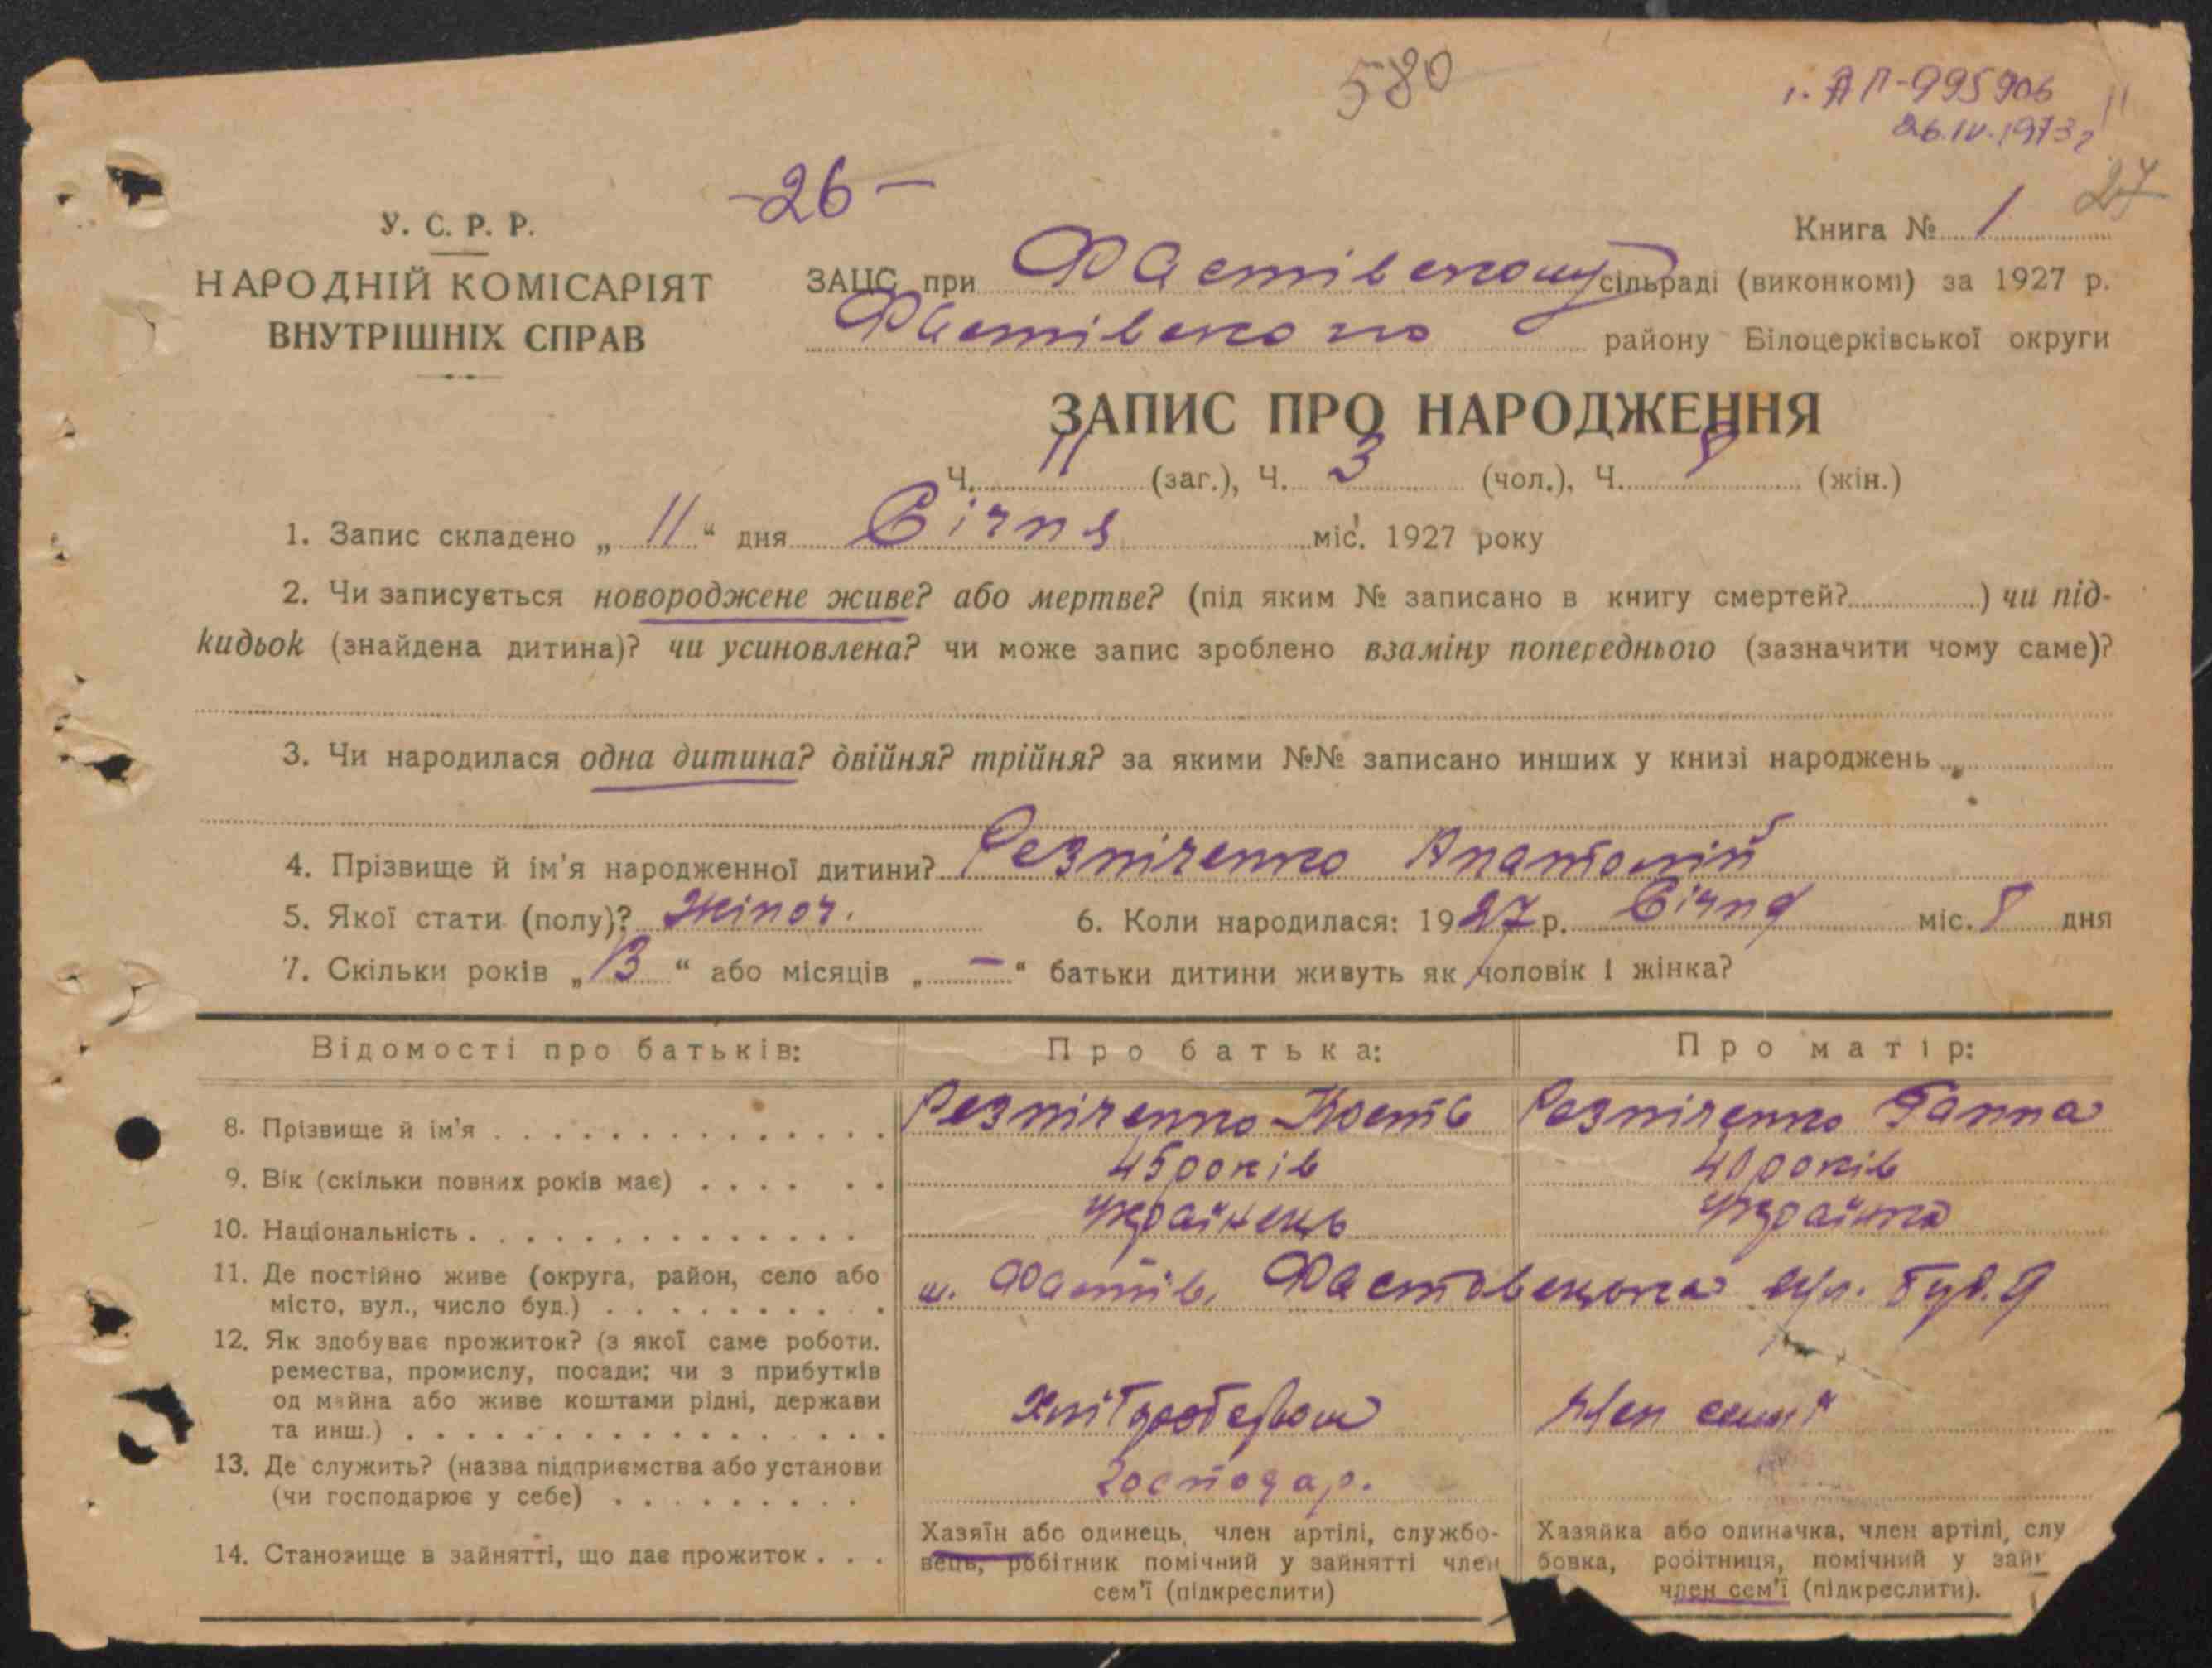 580
1. АП-995906
26.IV.1973г
-26-
27
У. С. Р. Р.
НАРОДНІЙ КОМІСАРІЯТ
ВНУТРІШНІХ СПРАВ
Книга № 1
ЗАЦС при Фастівському сільраді (виконкомі) за 1927 р.
Фастівського району Білоцерківської округи
ЗАПИС ПРО НАРОДЖЕННЯ
Ч. 11 (заг.), Ч. 3 (чол.), Ч. 8 (жін.)
1. Запис складено „ 11 “ дня Січня міс. 1927 року
2. Чи записується новороджене живе? або мертве? (під яким № записано в книгу смертей? ) чи під-
кидьок (знайдена дитина)? чи усиновлена? чи може запис зроблено взаміну попереднього (зазначити чому саме)?
3. Чи народилася одна дитина? двійня? трійня? за якими №№ записано инших у книзі народжень
4. Прізвище й ім'я народженної дитини? Резніченко Анатолій
5. Якої стати (полу)? Жіноч. 6. Коли народилася: 1927 р. Січня міс. 8 дня
7. Скільки років „ 13 “ або місяців „ — “ батьки дитини живуть як чоловік і жінка?
Відомості про батьків: Про батька: Про матір:
8. Прізвище й ім'я Резніченко Кость Резніченко Ганна
9. Вік (скільки повних років має) 45 років 40 років
10. Національність Українець Українка
11. Де постійно живе (округа, район, село або
місто, вул., число буд.) м. Фастів, Фастовецька вул. буд. 9
12. Як здобуває прожиток? (з якої саме роботи.
ремества, промислу, посади; чи з прибутків
од майна або живе коштами рідні, держави
та инш.) Хліборобством Член сем'ї
13. Де служить? (назва підприємства або установи
(чи господарює у себе) Господар.
14. Становище в зайнятті, що дає прожиток
Хазяїн або одинець, член артілі, службо-
вець, робітник помічний у зайнятті член
сем'ї (підкреслити)
Хазяйка або одиначка, член артілі, слу
бовка, робітниця, помічний у зайн
член сем'ї (підкреслити).